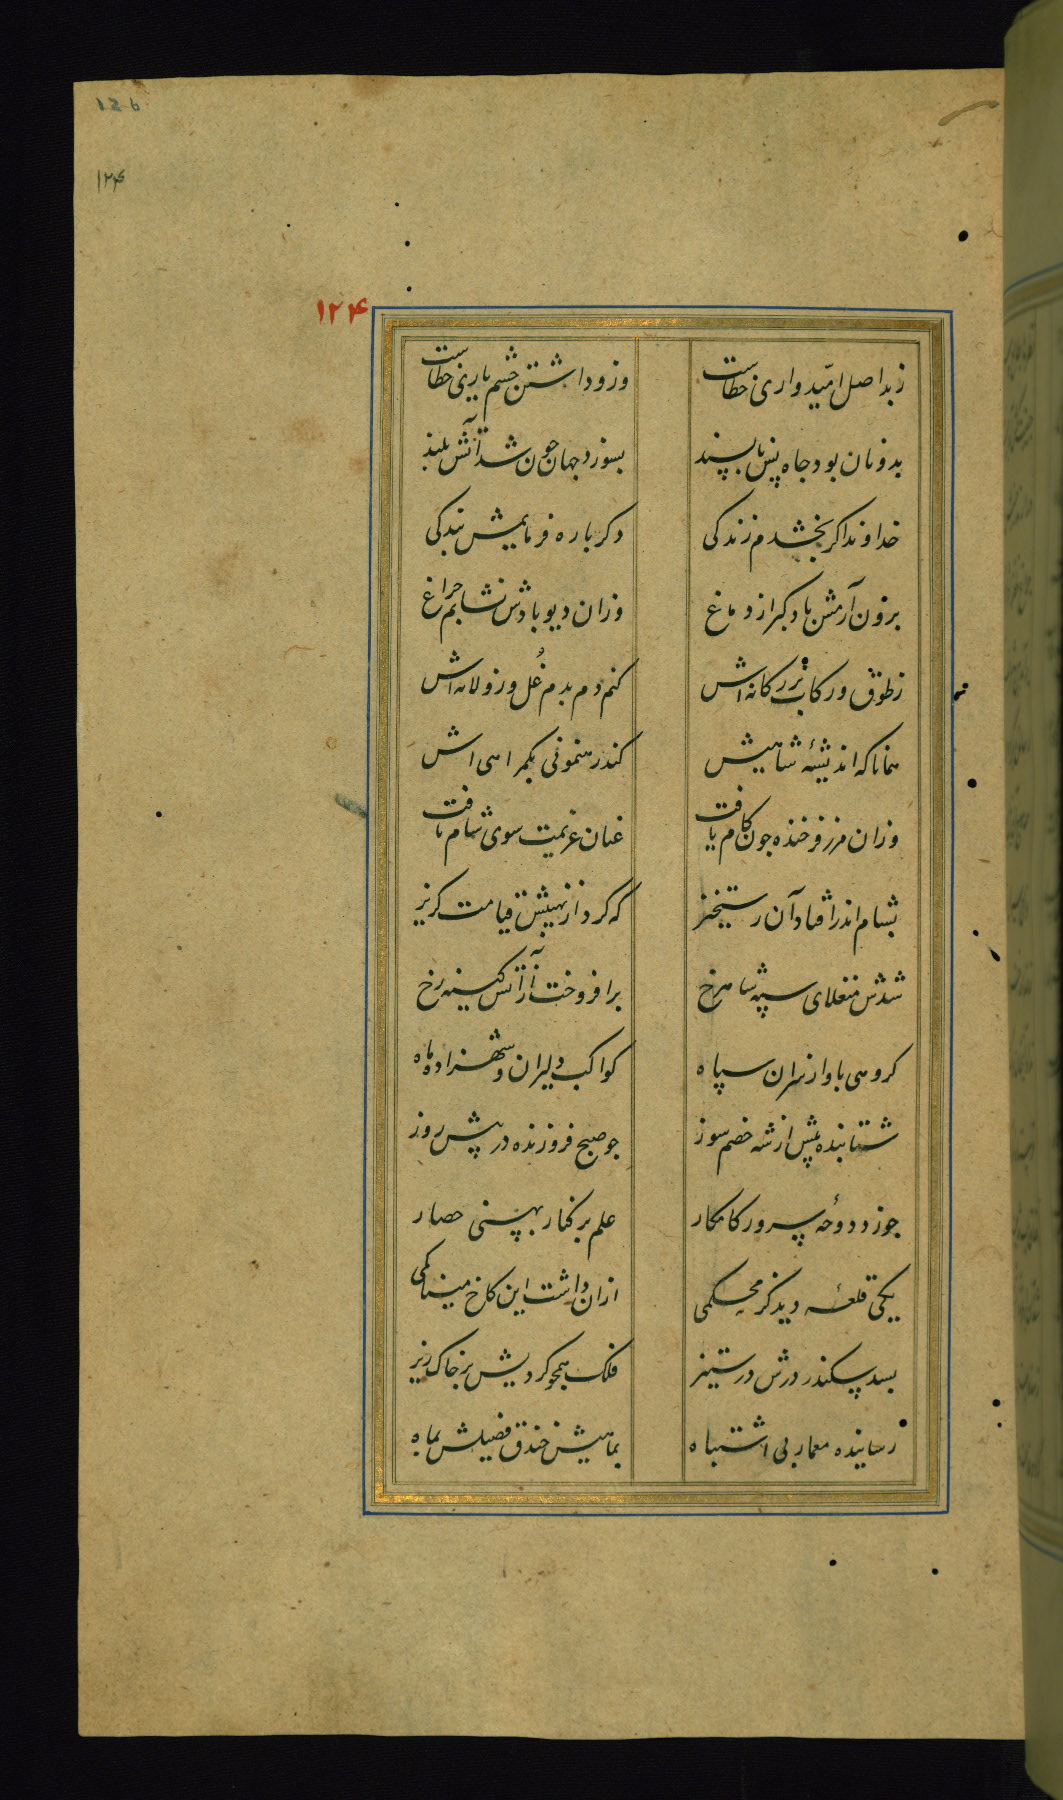 126
۱۲۴
۱۲۴
ز بد اصل امّیدواری خطاست وزو داشتن چشم یاری خطاست
بدونان بود جاه پس ناپسند بسوزد جهان چون شد آتش بلند
خداوند اکر بخشدم زندکی دکر باره فرمایمش بندکی
برون آرمش باد کبر از دماغ وزان دیو بادش نشانم چراغ
ز طوق و رکاب کنم دم بدم غُل و زولانه اش
همانا که اندیشهٔ شاهیش کند رهنمونی بکمراهی اش
وزان مرز فرخنده چون کام یافت عنان عزیمت سوی شام تافت
بشام اندر افتاد آن رستخیز که کرد از نهیبش قیامت کریز
شدش منغلای سپه شاهرخ برافروخت از آتش کینه رخ
کروهی باو از سران سپاه کواکب دلیران و شهزاده ماه
شتابنده پیش از شه خصم سوز چو صبح فروزنده در پیش روز
چو زد دوحهٔ پرور کامکار علم بر کنار بهسنی حصار
یکی قلعهٔ دید کز محکمی ازان داشت این کاخ مینا کمی
بسد سکندر درش در ستیز فلک همچو کردیش بر خاک ریز
رسانیده معمار بی اشتباه بماهیش خندق فصیلش بماه